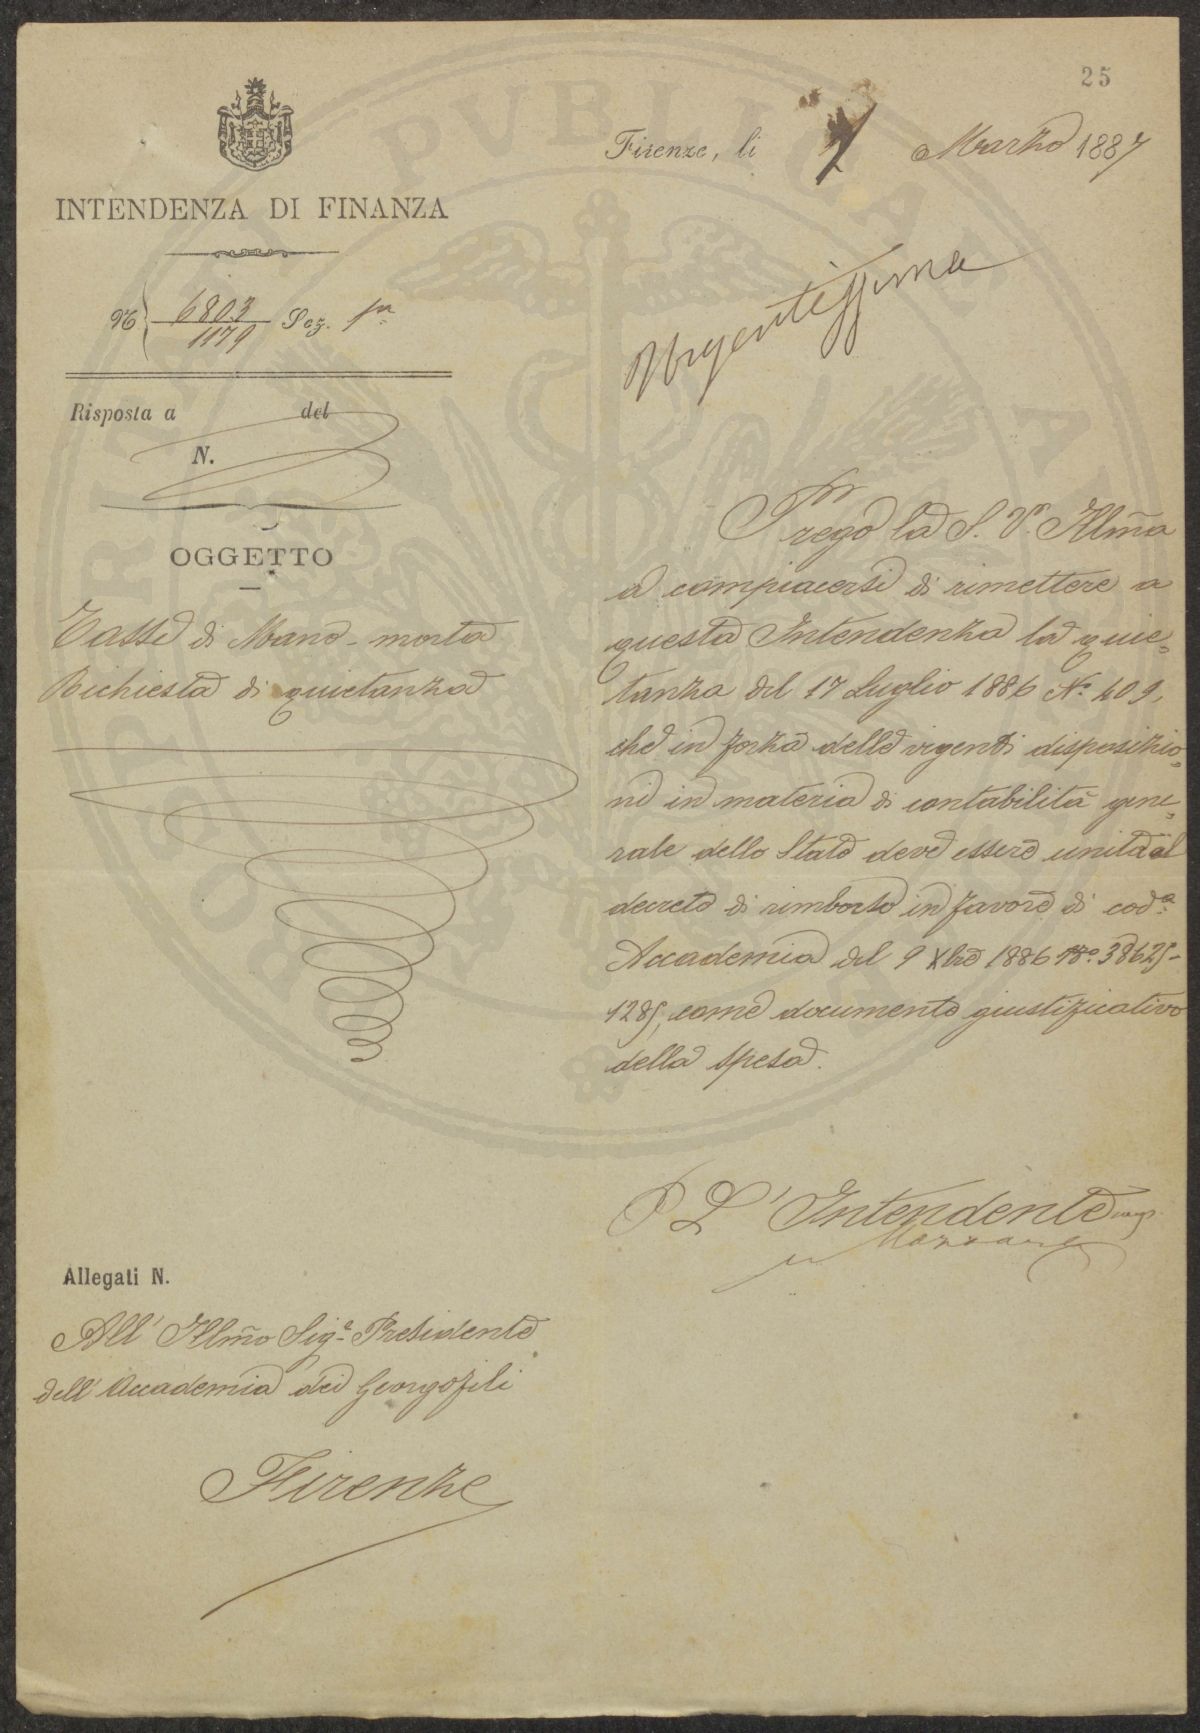 25
Firenze, li 7 Marzo 1887
INTENDENZA DI FINANZA
N. 6803 Sez. 1ª
1179
Urgentissima
Risposta a del
N.
OGGETTO
Tasse di Mano-morta
Richiesta di quietanza
Prego la S. V. Illm̃a
a compiacersi di rimettere a
questa Intendenza la quie=
tanza del 17 Luglio 1886 Nº 409,
che in forza delle vigenti disposizio=
ni in materia di contabilità gene=
rale dello Stato deve essere unita al
decreto di rimborso in favore di codª
Accademia del 9 Xbre 1886 Nº 38625-
1285, come documento giustificativo
della spesa.
P L'Intendente
Allegati N.
All' Illm̃o Sigr Presidente
dell' Accademia dei Georgofili
Firenze